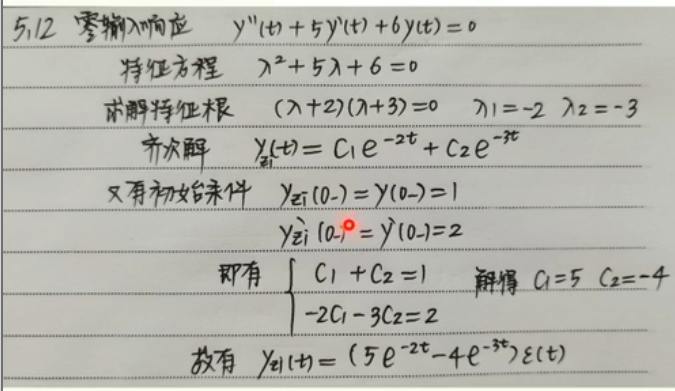 5.12 零输入响应 y''(t)+5y'(t)+6y(t)=0
特征方程 λ²+5λ+6=0
求解特征根 (λ+2)(λ+3)=0 λ1=-2 λ2=-3
齐次解 yzi(t)=C1e^-2t+C2e^-3t
又有初始条件 yzi(0-)=y(0-)=1
yzi'(0-)=y'(0-)=2
即有 { C1+C2=1 解得 C1=5 C2=-4
-2C1-3C2=2
故有 yzi(t)=(5e^-2t-4e^-3t)ε(t)